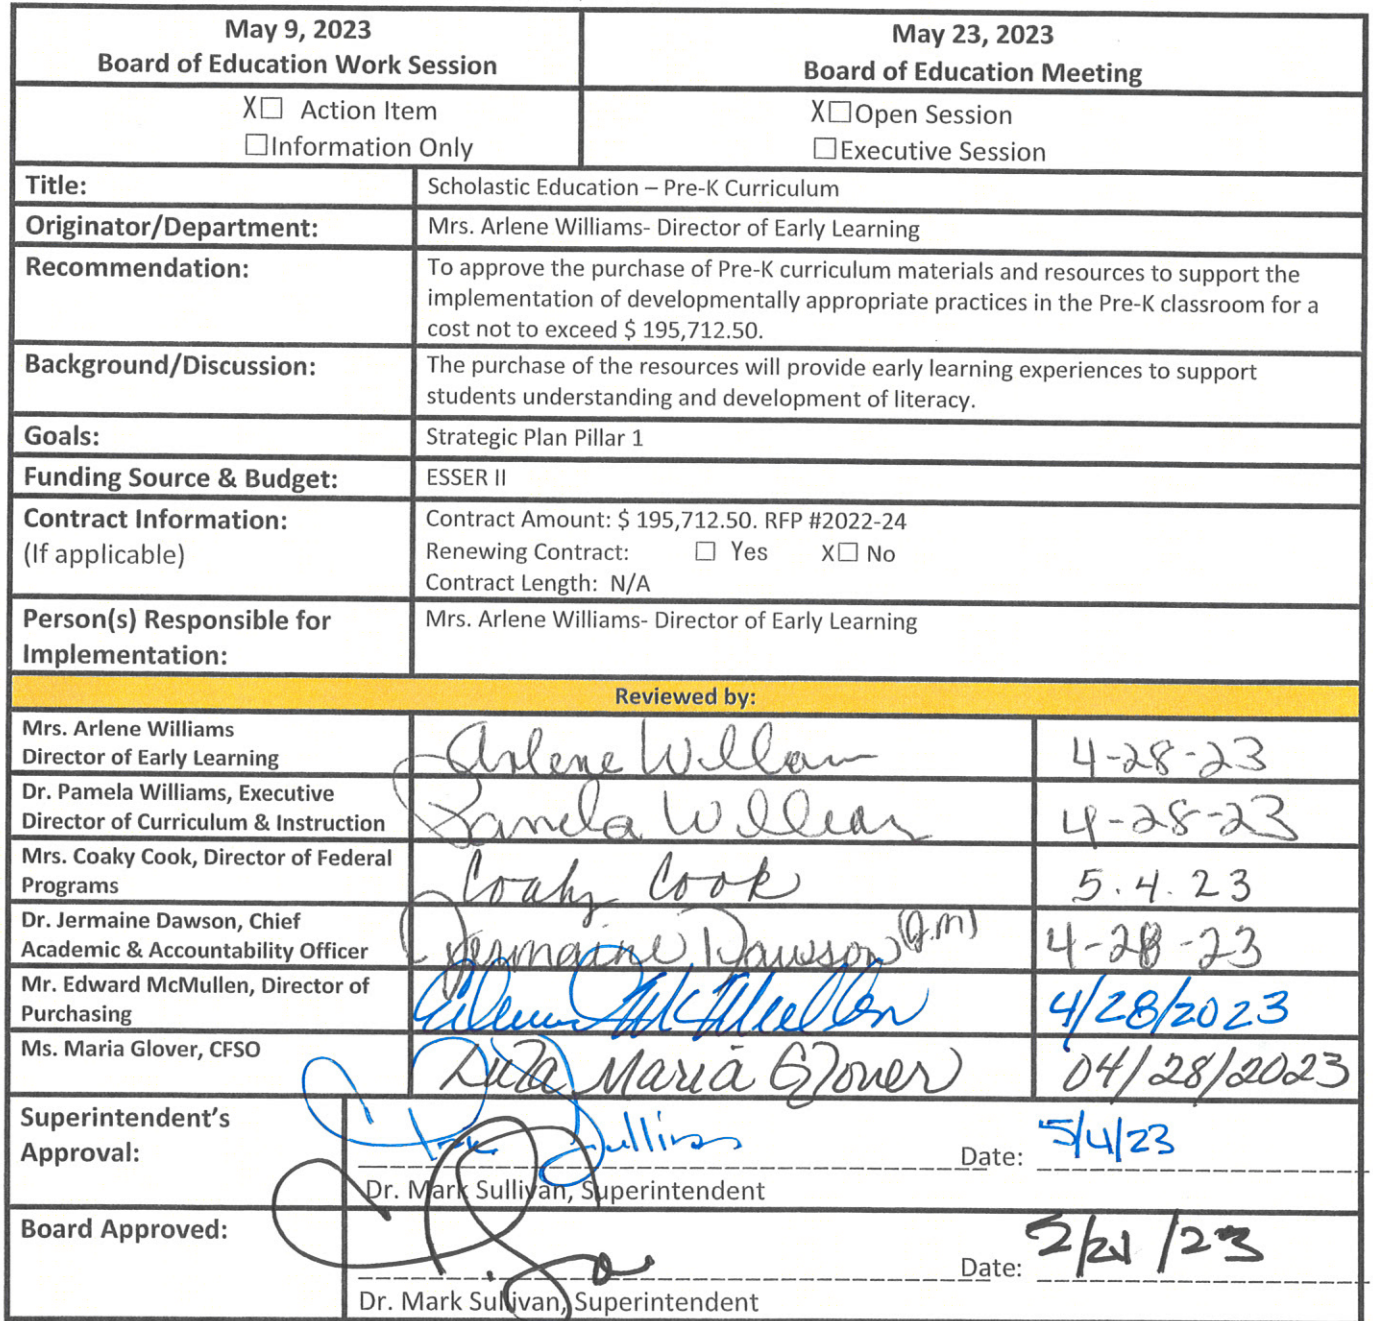 May 9, 2023
Board of Education Work Session
May 23, 2023
Board of Education Meeting
X☐ Action Item
☐Information Only
X☐Open Session
☐Executive Session
Title:
Scholastic Education – Pre-K Curriculum
Originator/Department:
Mrs. Arlene Williams- Director of Early Learning
Recommendation:
To approve the purchase of Pre-K curriculum materials and resources to support the
implementation of developmentally appropriate practices in the Pre-K classroom for a
cost not to exceed $ 195,712.50.
Background/Discussion:
The purchase of the resources will provide early learning experiences to support
students understanding and development of literacy.
Goals:
Strategic Plan Pillar 1
Funding Source & Budget:
ESSER II
Contract Information:
(If applicable)
Contract Amount: $ 195,712.50. RFP #2022-24
Renewing Contract: ☐ Yes X☐ No
Contract Length: N/A
Person(s) Responsible for
Implementation:
Mrs. Arlene Williams- Director of Early Learning
Reviewed by:
Mrs. Arlene Williams
Director of Early Learning
Arlene Williams
4-28-23
Dr. Pamela Williams, Executive
Director of Curriculum & Instruction
Pamela Williams
4-28-23
Mrs. Coaky Cook, Director of Federal
Programs
Coaky Cook
5.4.23
Dr. Jermaine Dawson, Chief
Academic & Accountability Officer
Jermaine Dawson
4-28-23
Mr. Edward McMullen, Director of
Purchasing
McMullen
4/28/2023
Ms. Maria Glover, CFSO
Maria Glover
04/28/2023
Superintendent's
Approval:
Sullivan
Date: 5/4/23
Dr. Mark Sullivan, Superintendent
Board Approved:
Date:
Dr. Mark Sullivan, Superintendent